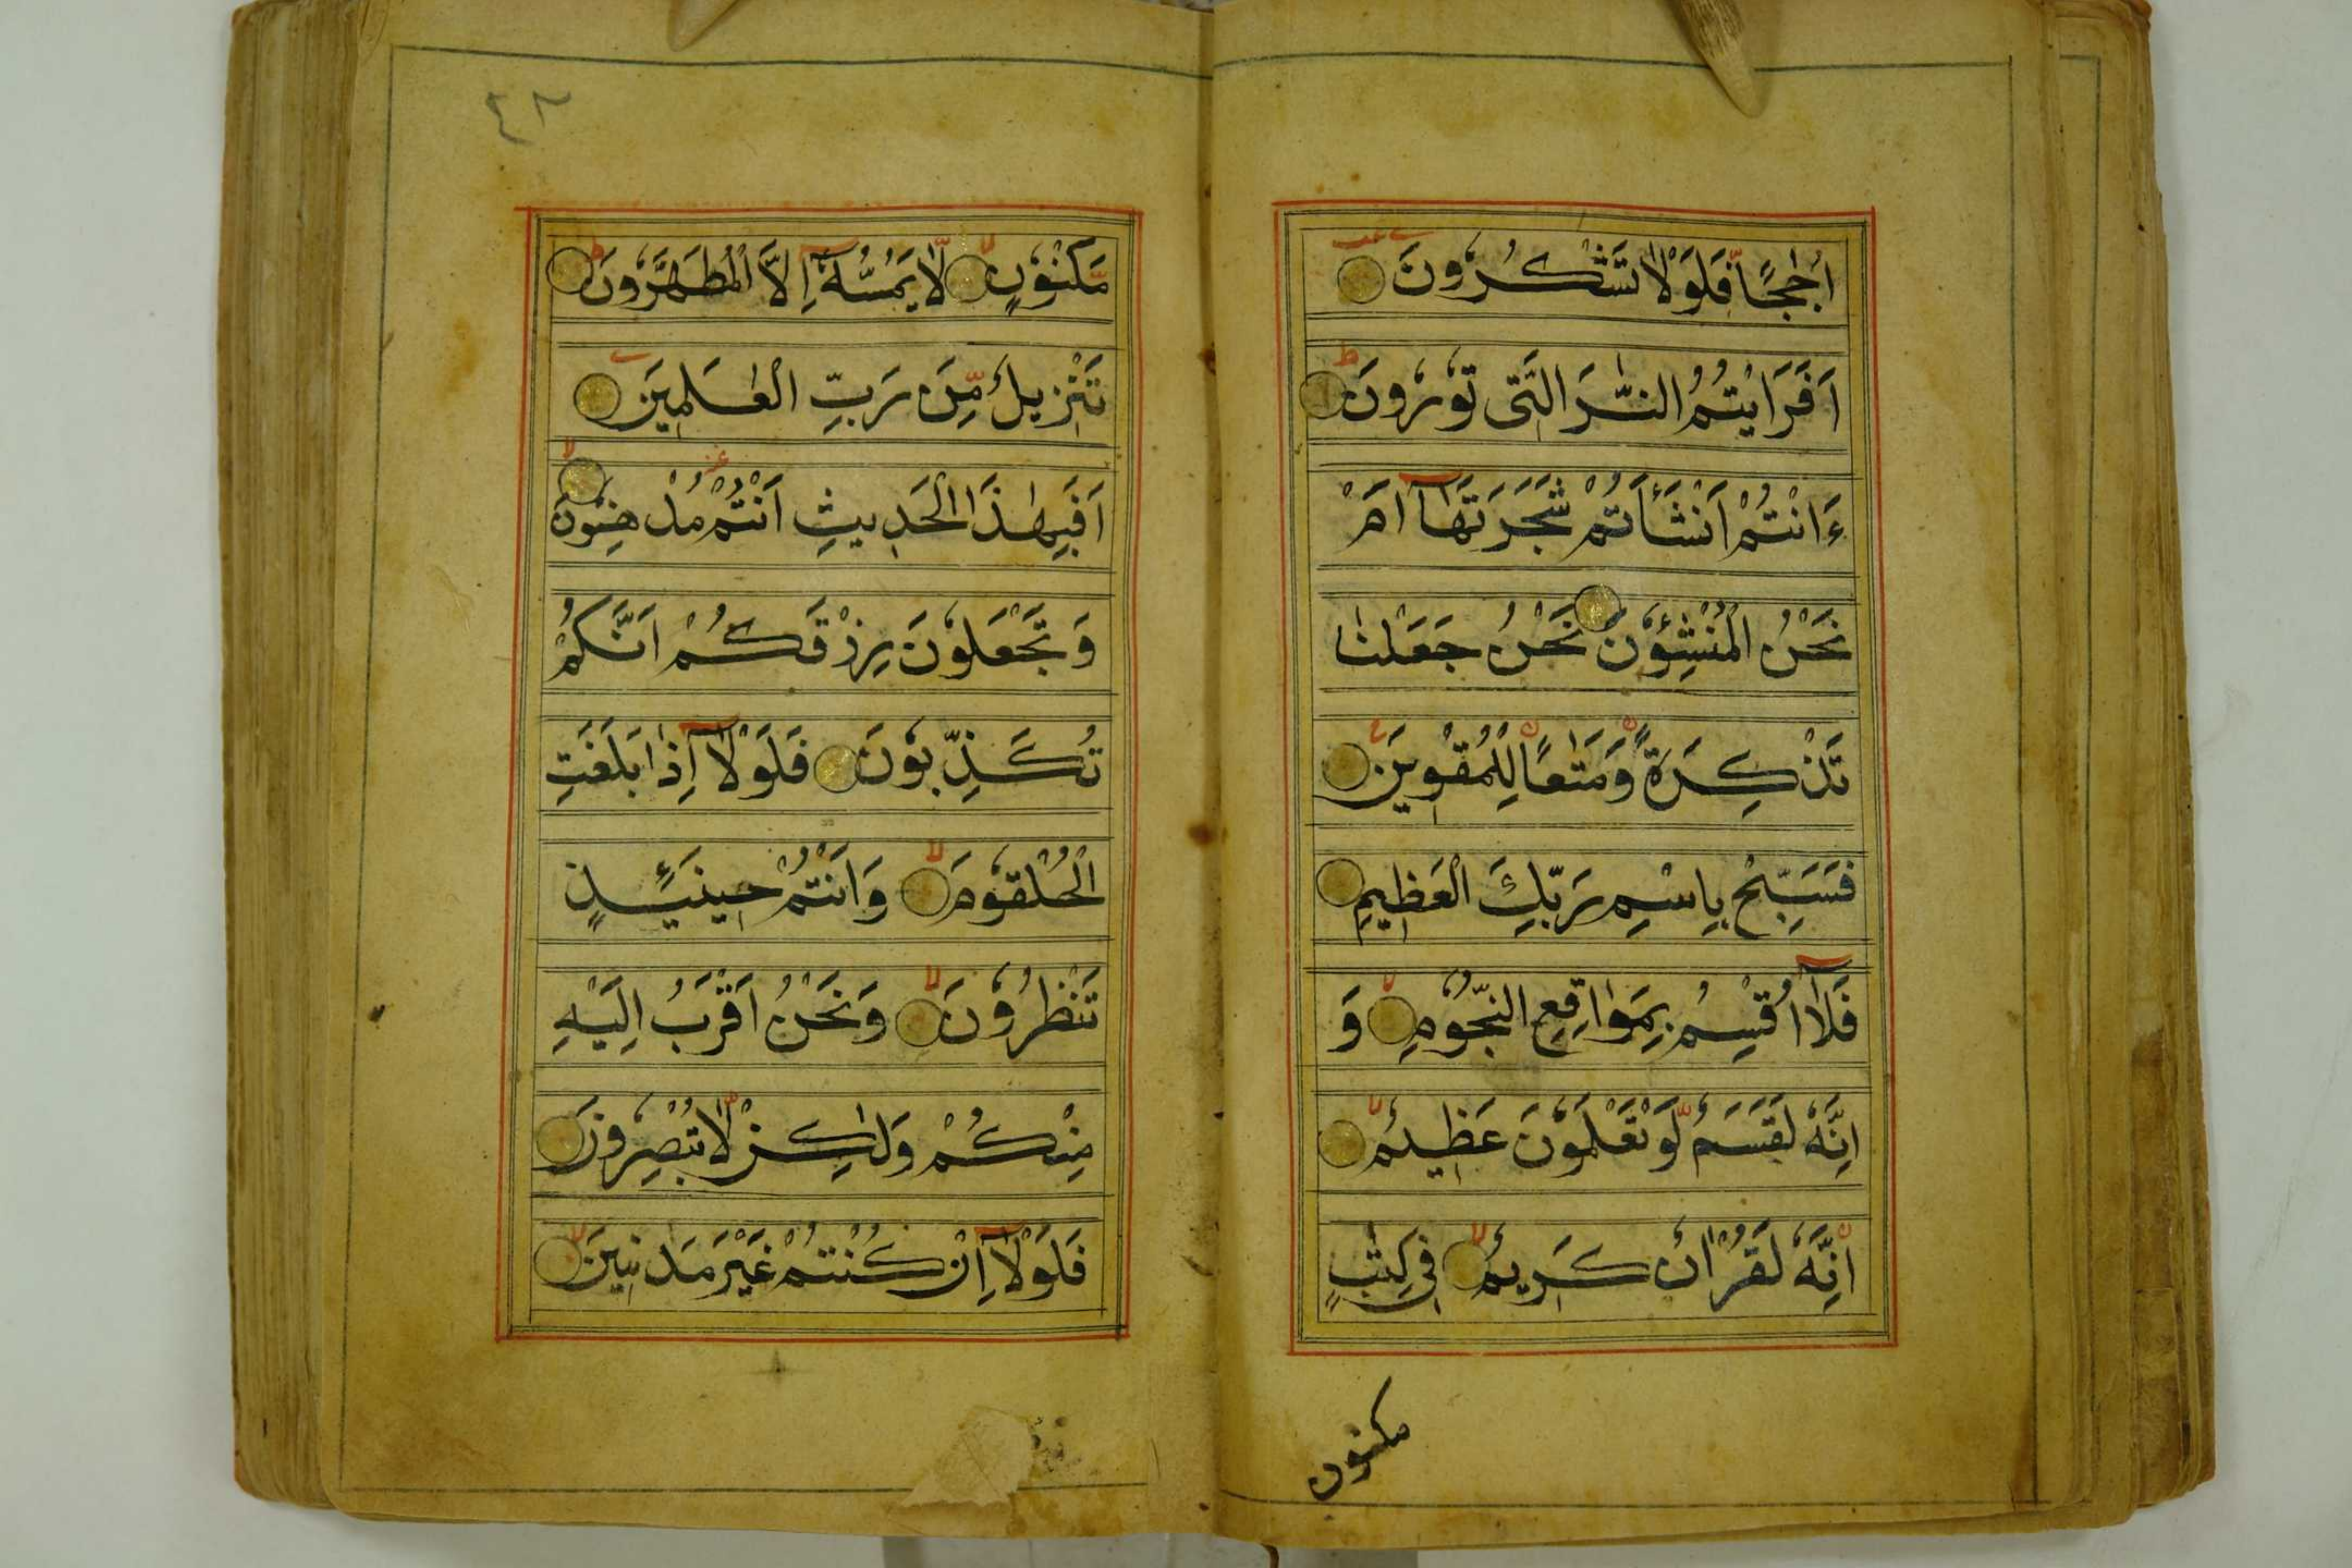 اُجَاجًا فَلَوْلَا تَشْكُرُونَ
اَفَرَاَيْتُمُ النَّارَ الَّتِى تُوْرُونَ
ءَاَنْتُمْ اَنْشَأْتُمْ شَجَرَتَهَآ اَمْ
نَحْنُ الْمُنْشِؤُنَ نَحْنُ جَعَلْنٰا
تَذْكِرَةً وَّمَتٰعًا لِّلْمُقْوِيْنَ
فَسَبِّحْ بِاسْمِ رَبِّكَ الْعَظِيْمِ
فَلَآ اُقْسِمُ بِمَوٰاقِعِ النُّجُوْمِ وَ
اِنَّهٗ لَقَسَمٌ لَّوْ تَعْلَمُوْنَ عَظِيْمٌ
اِنَّهٗ لَقُرْاٰنٌ كَرِيْمٌ فِى كِتٰبٍ
مكنون
٤٣
مَّكْنُوْنٍ لَّا يَمَسُّهٗٓ اِلَّا الْمُطَهَّرُوْنَ
تَنْزِيلٌ مِّنْ رَبِّ الْعٰلَمِيْنَ
اَفَبِهٰذَا الْحَدِيثِ اَنْتُمْ مُدْهِنُوْنَ
وَتَجْعَلُوْنَ رِزْقَكُمْ اَنَّكُمْ
تُكَذِّبُوْنَ فَلَوْلَآ اِذَا بَلَغَتِ
الْحُلْقُوْمَ وَاَنْتُمْ حِينَئِذٍ
تَنْظُرُوْنَ وَنَحْنُ اَقْرَبُ اِلَيْهِ
مِنْكُمْ وَلٰكِنْ لَّا تُبْصِرُوْنَ
فَلَوْلَآ اِنْ كُنْتُمْ غَيْرَ مَدِيْنِينَ